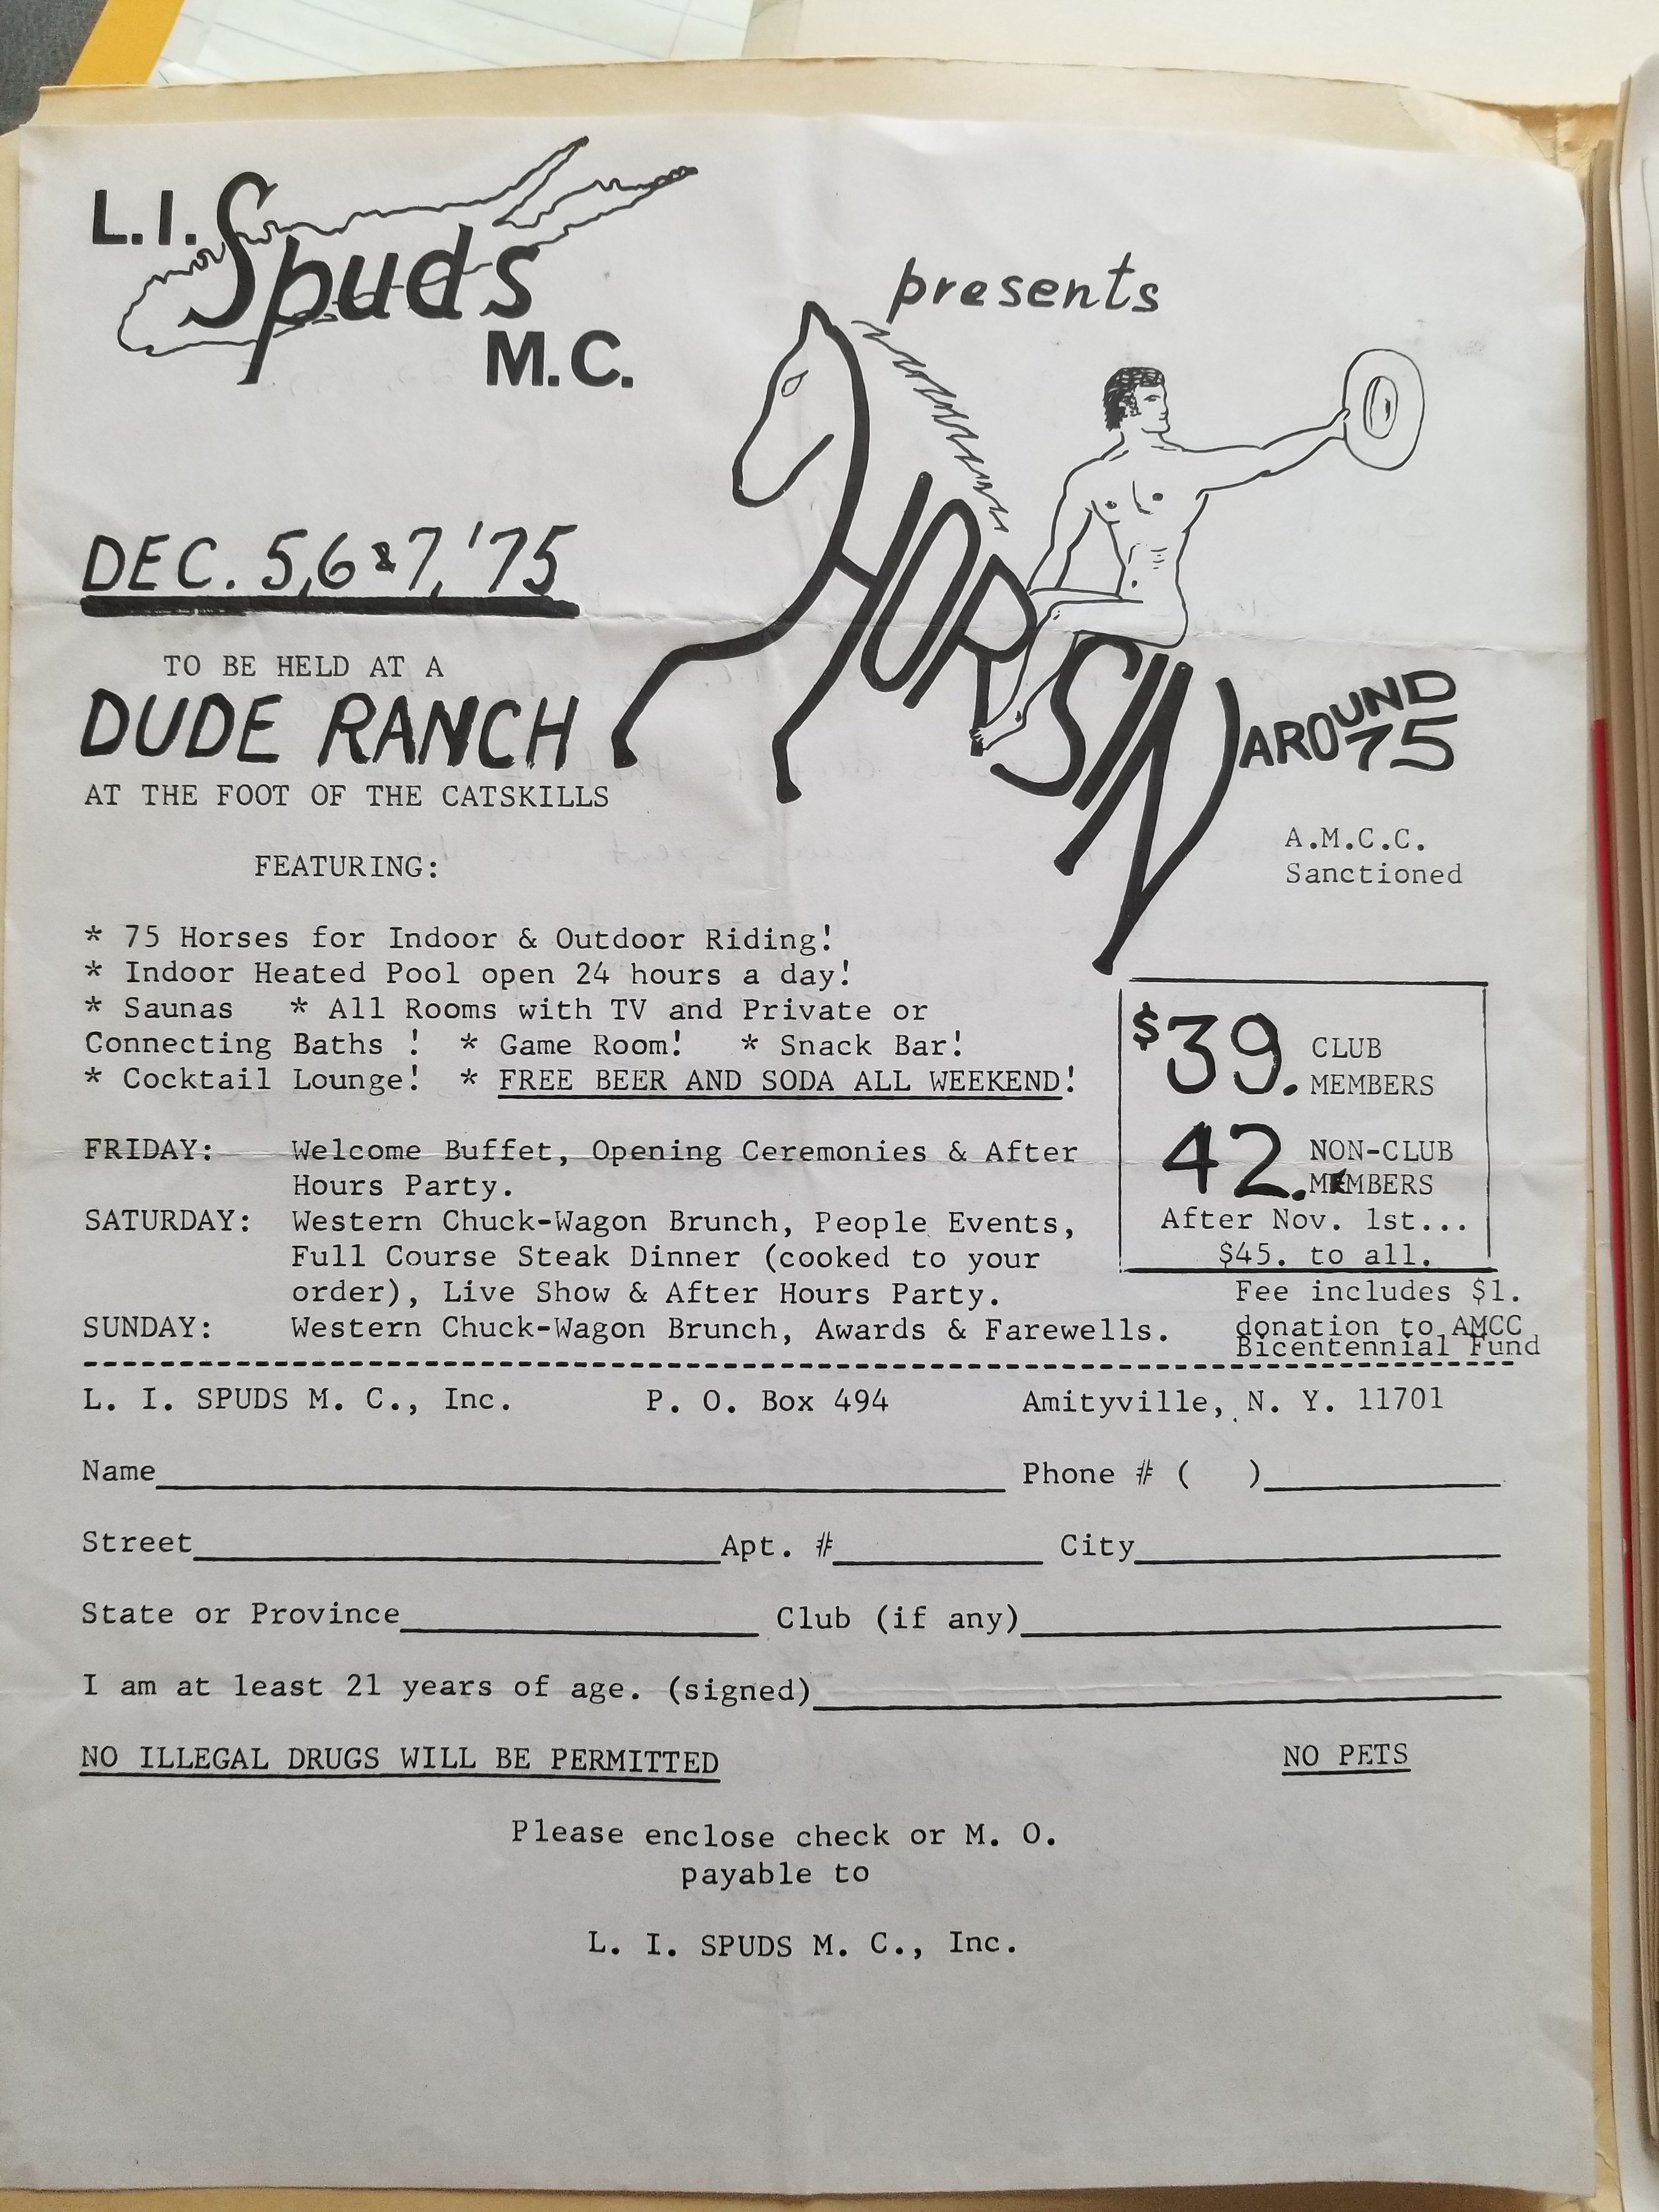 L.I. Spuds
M.C.
presents
HORSIN AROUND
75
DEC. 5,6 & 7, '75
TO BE HELD AT A
DUDE RANCH
AT THE FOOT OF THE CATSKILLS
A.M.C.C.
Sanctioned
FEATURING:
* 75 Horses for Indoor & Outdoor Riding!
* Indoor Heated Pool open 24 hours a day!
* Saunas * All Rooms with TV and Private or
Connecting Baths ! * Game Room! * Snack Bar!
* Cocktail Lounge! * FREE BEER AND SODA ALL WEEKEND!
$39. CLUB
MEMBERS
42. NON-CLUB
MEMBERS
After Nov. 1st...
$45. to all.
Fee includes $1.
donation to AMCC
Bicentennial Fund
FRIDAY: Welcome Buffet, Opening Ceremonies & After
Hours Party.
SATURDAY: Western Chuck-Wagon Brunch, People Events,
Full Course Steak Dinner (cooked to your
order), Live Show & After Hours Party.
SUNDAY: Western Chuck-Wagon Brunch, Awards & Farewells.
L. I. SPUDS M. C., Inc. P. O. Box 494 Amityville, N. Y. 11701
Name Phone # ( )
Street Apt. # City
State or Province Club (if any)
I am at least 21 years of age. (signed)
NO ILLEGAL DRUGS WILL BE PERMITTED NO PETS
Please enclose check or M. O.
payable to
L. I. SPUDS M. C., Inc.